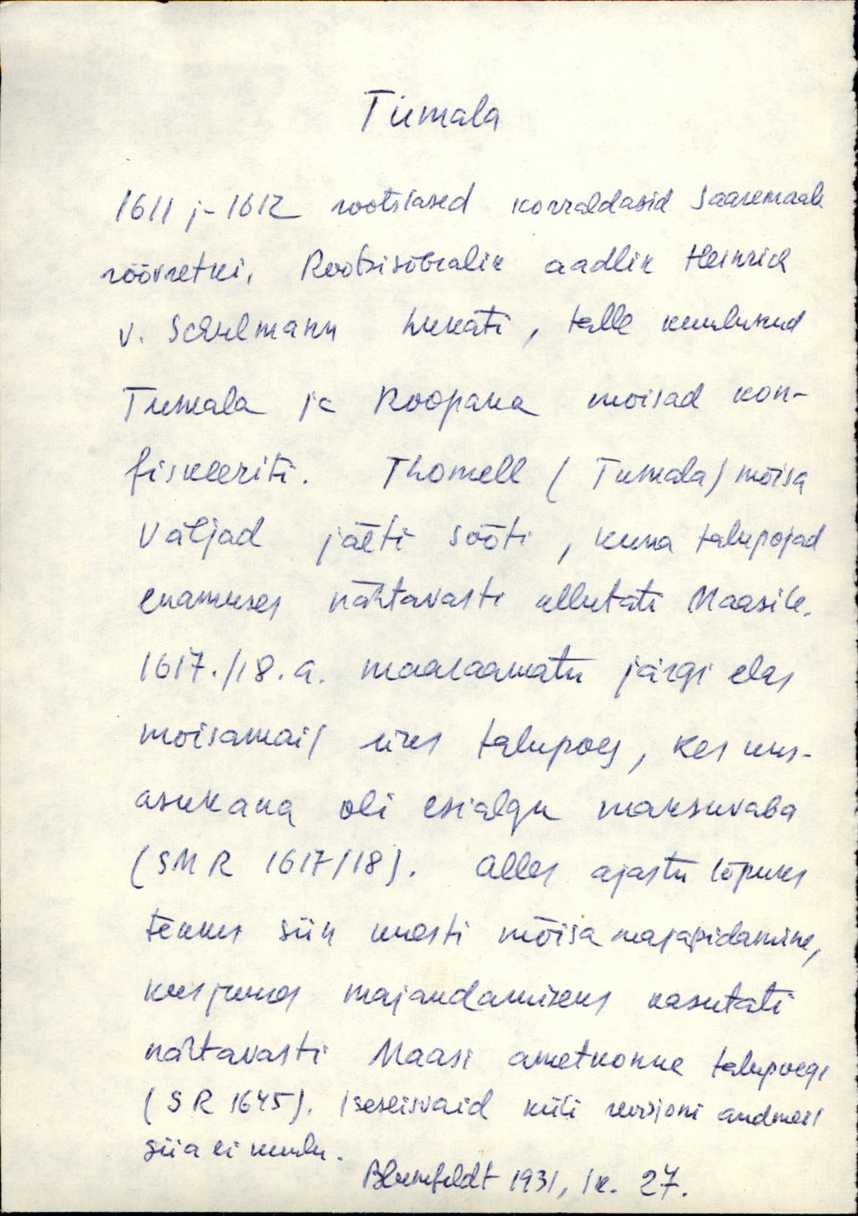 Tumala
1611 j- 1612 rootslased korraldasid Saaremaale
röövretki. Rootsisõbralik aadlik Heinrich
v. Schulmann hukati, talle kuulunud
Tumala ja Roopana moisad kon-
fiskeeriti. Thomell (Tumala) mõisa
väljad jäeti sööti, kuna talupojad
enamuses nähtavasti allutati Maasile.
1617./18. a. maaraamatu järgi elas
moisamail üks talupoeg, kes uus-
asukana oli esialgu maksuvaba
(SMR 1617/18). Alles ajastu lõpuks
tekkis siin uuesti mõisa majapidamine,
kusjuures majandamiseks kasutati
nähtavasti Maasi ametkonna talupoegi
(SR 1645). Iseseisvaid küli revisjoni andmeil
siia ei kuulu.
Blumfeldt 1931, lk. 27.